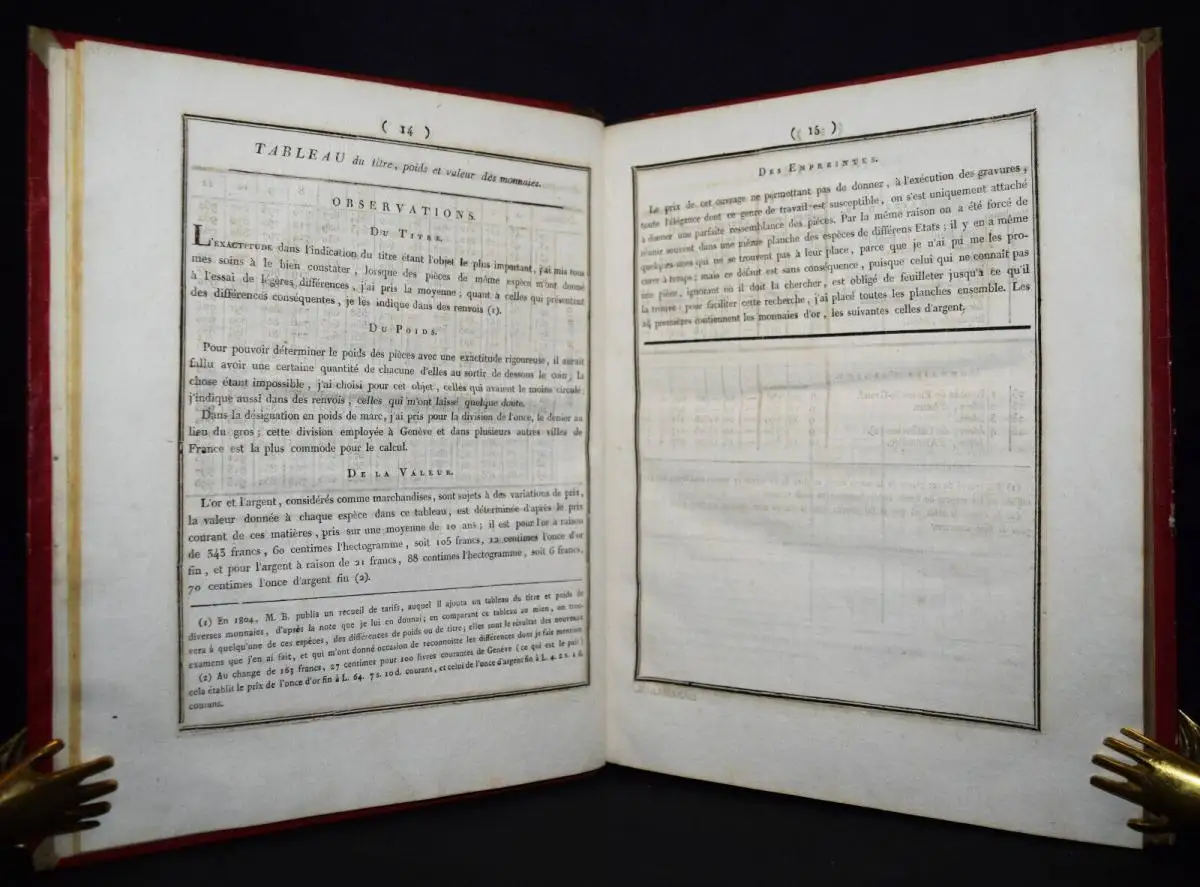 ( 14 )
TABLEAU du titre, poids et valeur des monnaies.
OBSERVATIONS.
DU TITRE.
L'EXACTITUDE dans l'indication du titre étant l'objet le plus important, j'ai mis tous
mes soins à le bien constater, lorsque des pièces de même espèce m'ont donné
à l'essai de légères différences, j'ai pris la moyenne; quant à celles qui présentent
des différences conséquentes, je les indique dans des renvois (1).
DU POIDS.
Pour pouvoir déterminer le poids des pièces avec une exactitude rigoureuse, il aurait
fallu avoir une certaine quantité de chacune d'elles au sortir de dessous le coin; la
chose étant impossible, j'ai choisi pour cet objet, celles qui avaient le moins circulé;
j'indique aussi dans des renvois, celles qui m'ont laissé quelque doute.
Dans la désignation en poids de marc, j'ai pris pour la division de l'once, le denier au
lieu du gros; cette division employée à Genève et dans plusieurs autres villes de
France est la plus commode pour le calcul.
DE LA VALEUR.
L'or et l'argent, considérés comme marchandises, sont sujets à des variations de prix,
la valeur donnée à chaque espèce dans ce tableau, est déterminée d'après le prix
courant de ces matières, pris sur une moyenne de 10 ans; il est pour l'or à raison
de 343 francs, 60 centimes l'hectogramme, soit 105 francs, 12 centimes l'once d'or
fin, et pour l'argent à raison de 21 francs, 88 centimes l'hectogramme, soit 6 francs,
70 centimes l'once d'argent fin (2).
(1) En 1804. M. B. publia un recueil de tarifs, auquel il ajouta un tableau du titre et poids de
diverses monnaies, d'après la note que je lui en donnai; en comparant ce tableau au mien, on trou-
vera à quelqu'une de ces espèces, des différences de poids ou de titre; elles sont le résultat des nouveaux
examens que j'en ai fait, et qui m'ont donné occasion de reconnoître les différences dont je fais mention.
(2) Au change de 163 francs, 27 centimes pour 100 livres courantes de Genève (ce qui est le pair)
cela établit le prix de l'once d'or fin à L. 64. 7 s. 10 d. courant, et celui de l'once d'argent fin à L. 4. 2 s. 1 d.
courans.
( 15 )
DES EMPREINTES.
Le prix de cet ouvrage ne permettant pas de donner, à l'exécution des gravures,
toute l'élégance dont ce genre de travail est susceptible, on s'est uniquement attaché
à donner une parfaite ressemblance des pièces. Par la même raison on a été forcé de
réunir souvent dans une même planche des espèces de différens Etats; il y en a même
quelques-unes qui ne se trouvent pas à leur place, parce que je n'ai pu me les pro-
curer à temps; mais ce défaut est sans conséquence, puisque celui qui ne connaît pas
une pièce, ignorant où il doit la chercher, est obligé de feuilleter jusqu'à ce qu'il
la trouve: pour faciliter cette recherche, j'ai placé toutes les planches ensemble. Les
24 premières contiennent les monnaies d'or, les suivantes celles d'argent.